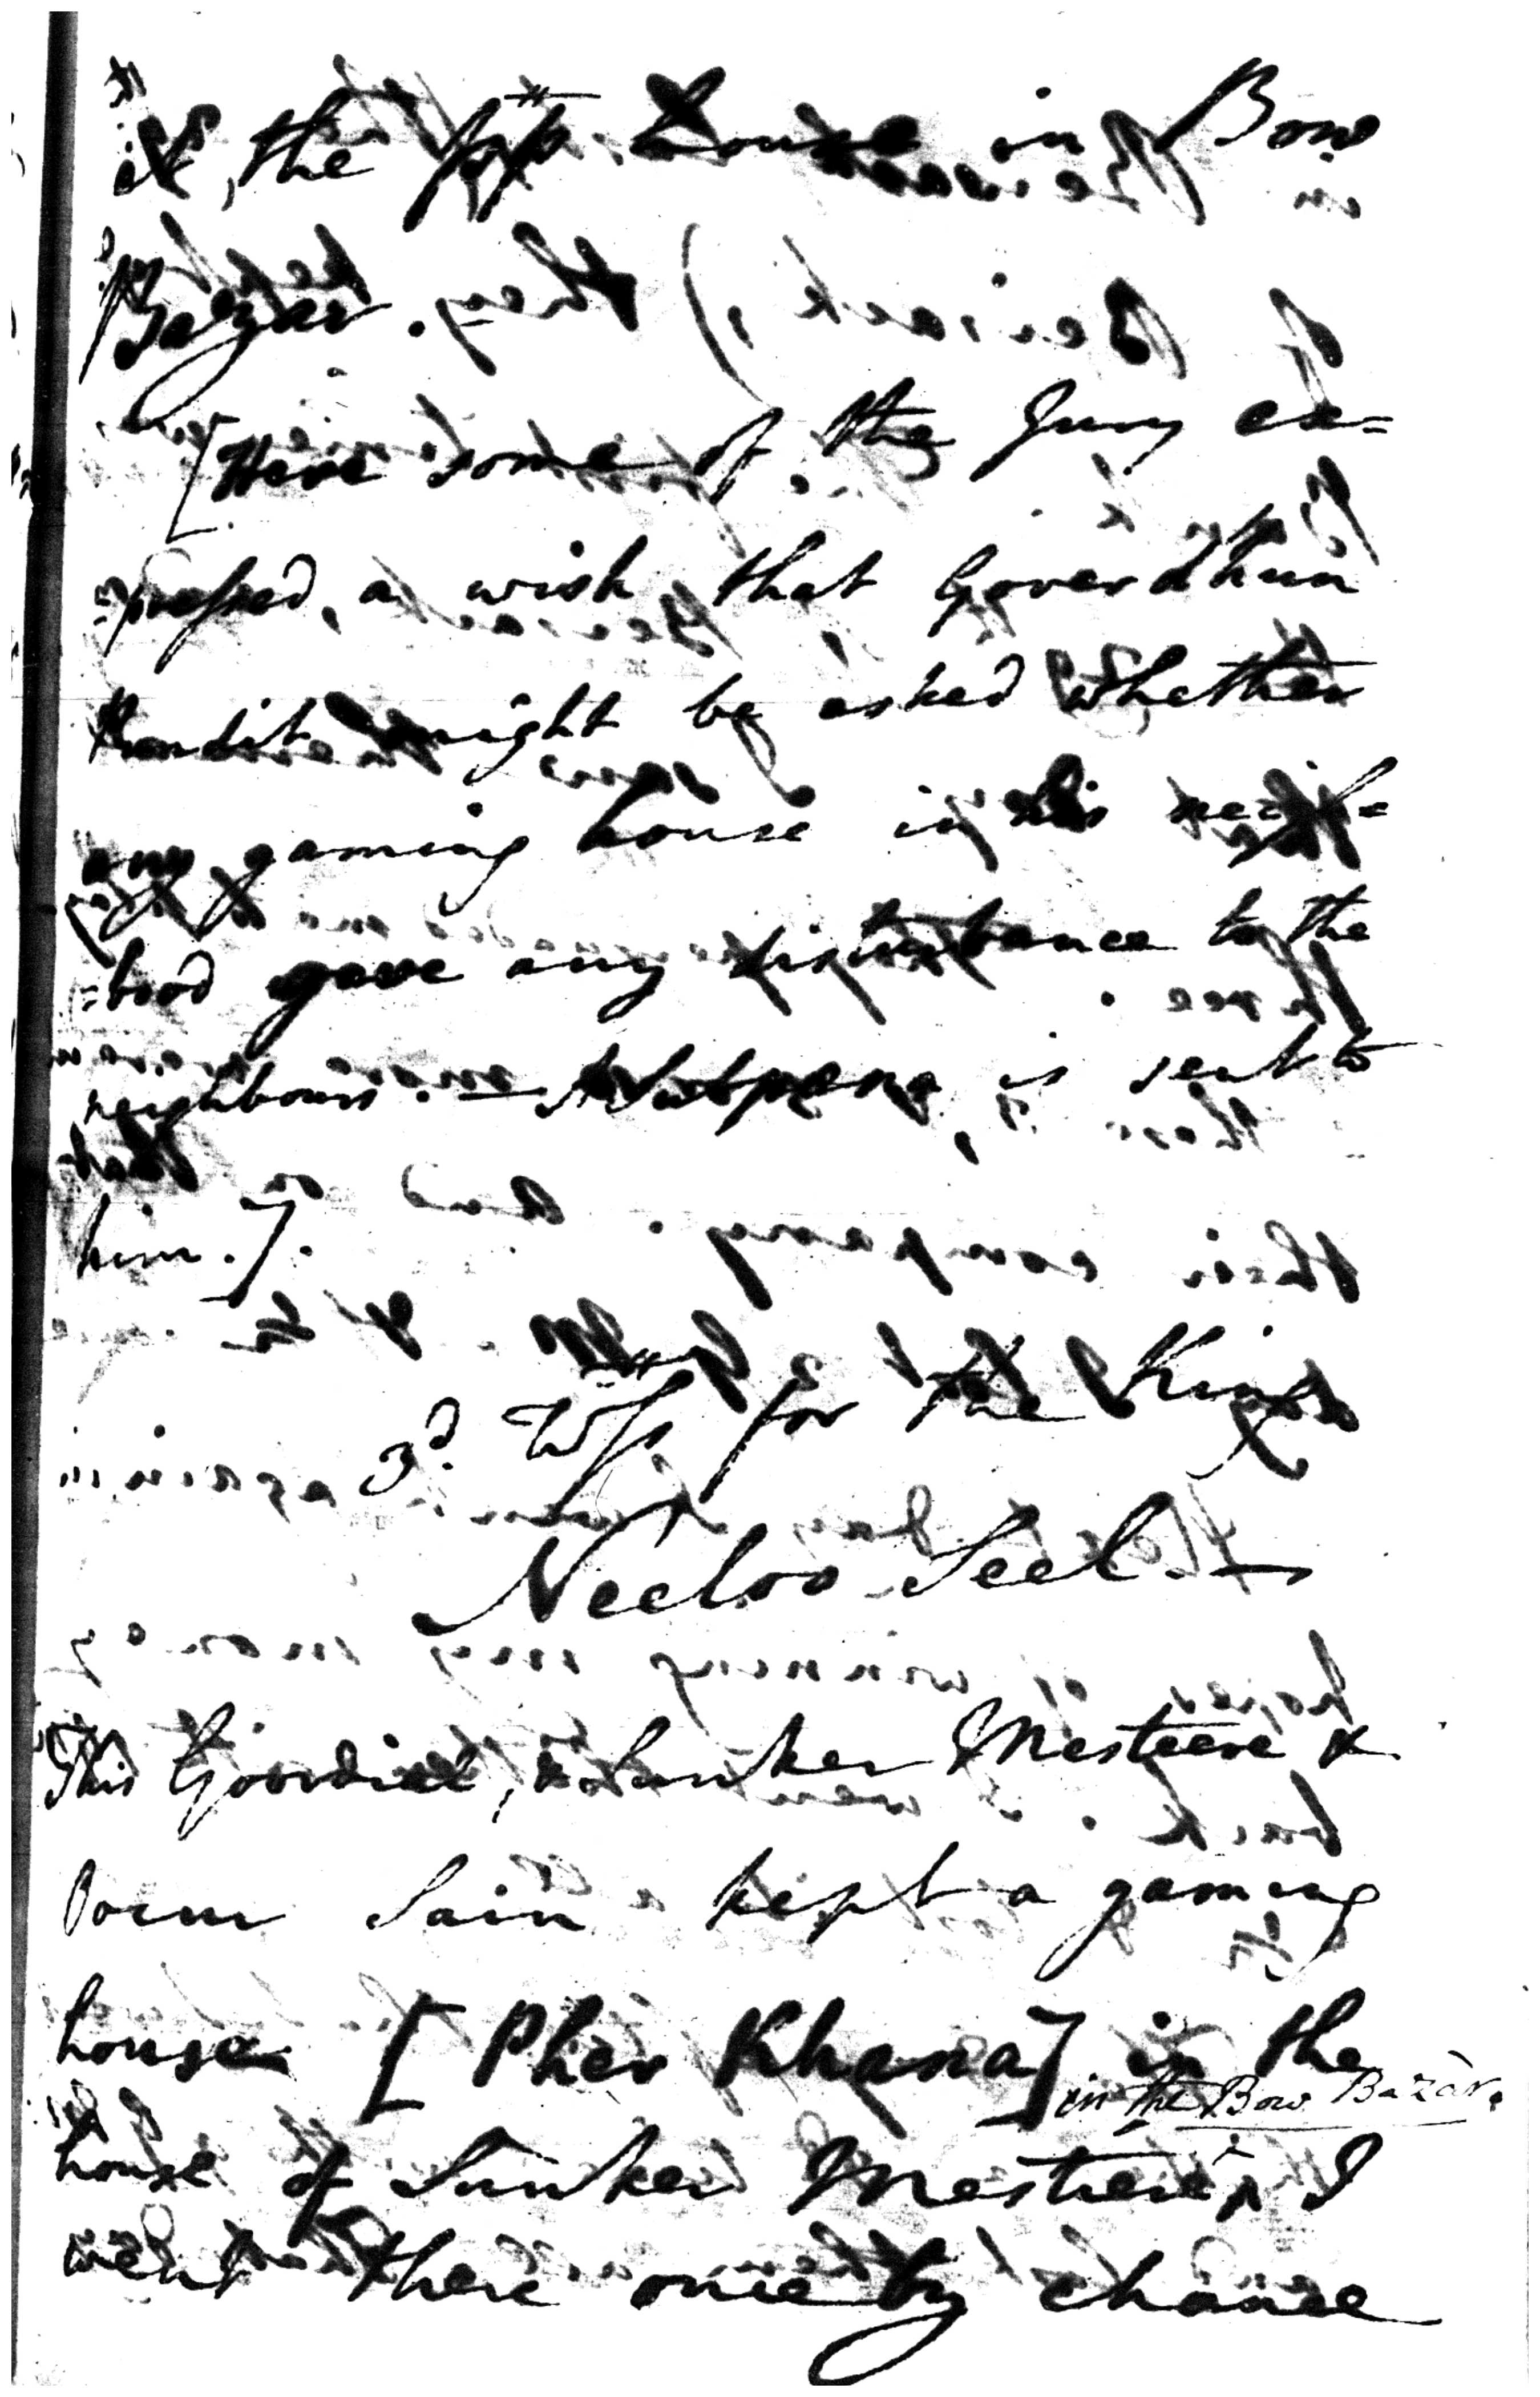 it, the house in Bow
Bazar.
[Here some of the Jury ex=
=pressed, a wish that Goverdhun
Pundit might be asked whether
any gaming house in his neigh=
=bood gave any disturbance to the
neighbours. — A Subpoena, is sent to
him.].
3d. Wss for the King
Neeloo Seel. —
This Goordial, & Sunker Mesteere &
Sain kept a gaming
house [Pher Khana] in the
in the Bow Bazàr.
house of Sunker Mestere, I
went there once by chance